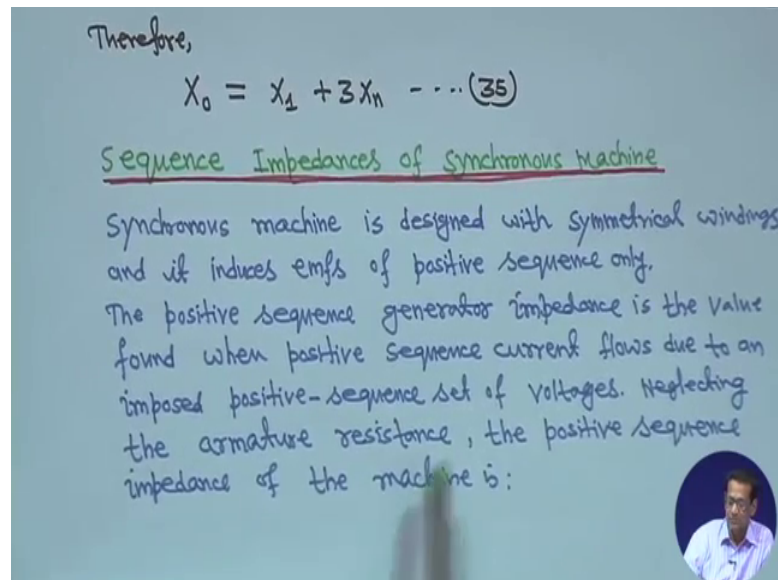 Therefore,
X₀ = X₁ + 3Xₙ ---- (35)
Sequence Impedances of Synchronous Machine
Synchronous machine is designed with symmetrical windings
and it induces emfs of positive sequence only.
The positive sequence generator impedance is the value
found when positive sequence current flows due to an
imposed positive-sequence set of voltages. Neglecting
the armature resistance, the positive sequence
impedance of the machine is: